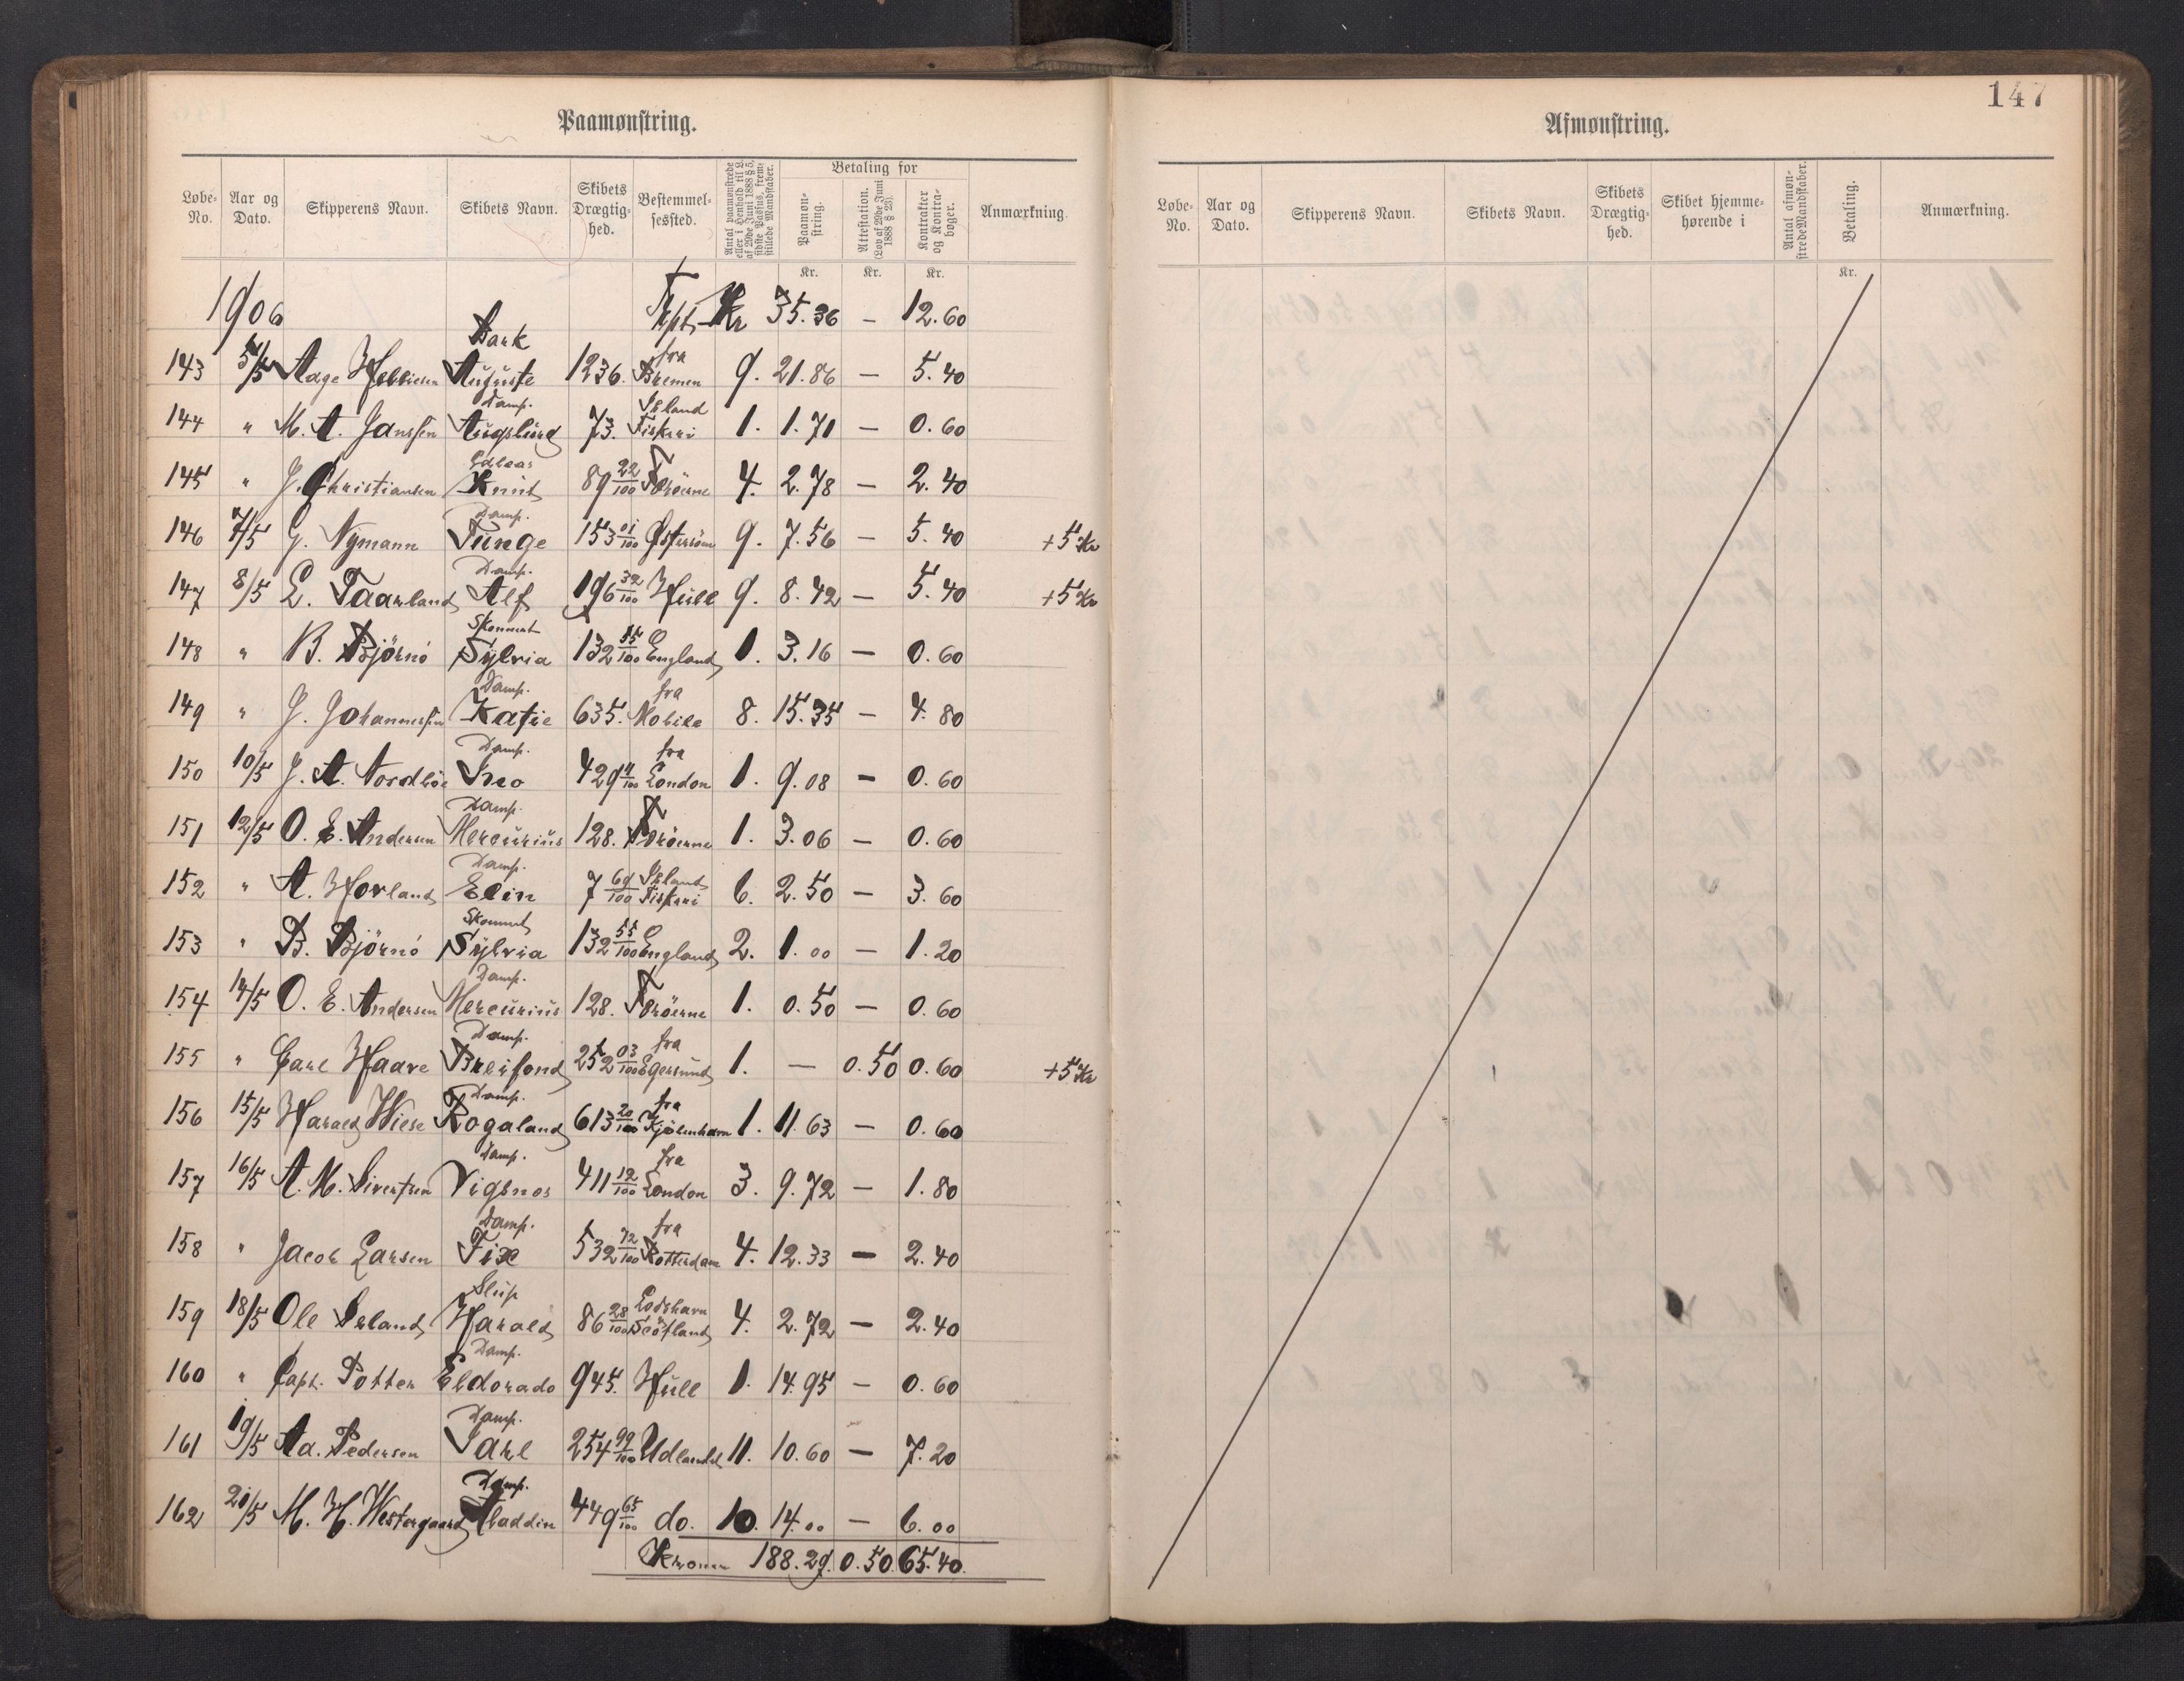 147
Paamønstring.
Løbe-No. Aar og Dato. Skipperens Navn. Skibets Navn. Skibets Drægtighed. Bestemmelsessted. Antal paamønstrede eller i Henhold til L. af 29de Juni 1888 § 5, sidste Passus, fremstillede Mandskaber. Betaling for Paamønstring. Attestation. (Lov af 29de Juni 1888 § 23). Kontrakter og Kontrabøger. Anmærkning.
Kr. Kr. Kr.
1906 Kr 35.36 — 12.60
Bark fra
143 5/5 Aage Auguste 1236. Bremen 9. 21.86 — 5.40
Damp. Island
144 " M. A. Janssen 73. Fiskeri 1. 1.71 — 0.60
145 " J. Christiansen Knut 89 22/100 Færöerne 4. 2.78 — 2.40
Damp.
146 7/5 G. Nymann Tunge 153 01/100 Östersöen 9. 7.56 — 5.40 +5 Kr
Damp.
147 8/5 L. Taarland Alf 196 32/100 Hull 9. 8.42 — 5.40 +5 Kr
Skonnert
148 " B. Björnö Sylvia 132 55/100 England 1. 3.16 — 0.60
Damp. fra
149 " J. Johannessen Katie 635. Mobile 8. 15.35 — 4.80
Damp. fra
150 10/5 J. A. Nordböe Ino 429 11/100 London 1. 9.08 — 0.60
Damp.
151 12/5 O. E. Andersen Mercurius 128. Færöerne 1. 3.06 — 0.60
Damp. Island
152 " A. Hovland Elin 7 69/100 Fiskeri 6. 2.50 — 3.60
Skonnert
153 " B. Björnö Sylvia 132 55/100 England 2. 1.00 — 1.20
Damp.
154 14/5 O. E. Andersen Mercurius 128. Færöerne 1. 0.50 — 0.60
Damp. fra
155 " Carl Haave Breifond 252 03/100 Egersund 1. — 0.50 0.60 +5 Kr
Damp. fra
156 15/5 Harald Wiese Rogaland 613 20/100 Kjöbenhavn 1. 11.63 — 0.60
Damp. fra
157 16/5 A. M. Sivertsen Vigsnes 411 12/100 London 3. 9.72 — 1.80
Damp. fra
158 " Jacob Larsen Fix 532 72/100 Rotterdam 4. 12.33 — 2.40
Slup
159 18/5 Ole Harald 86 28/100 4. 2.72 — 2.40
Damp.
160 " Capt. Potter Eldorado 945. Hull 1. 14.95 — 0.60
Damp.
161 19/5 Ad. Pedersen Jarl 254 99/100 Udlandet 11. 10.60 — 7.20
Damp.
162 20/5 M. H. Westergaard Aladdin 449 65/100 do. 10. 14.00 — 6.00
Kroner 188.29. 0.50. 65.40.
Afmønstring.
Løbe-No. Aar og Dato. Skipperens Navn. Skibets Navn. Skibets Drægtighed. Skibet hjemmehørende i Antal afmønstrede Mandskaber. Betaling. Anmærkning.
Kr.